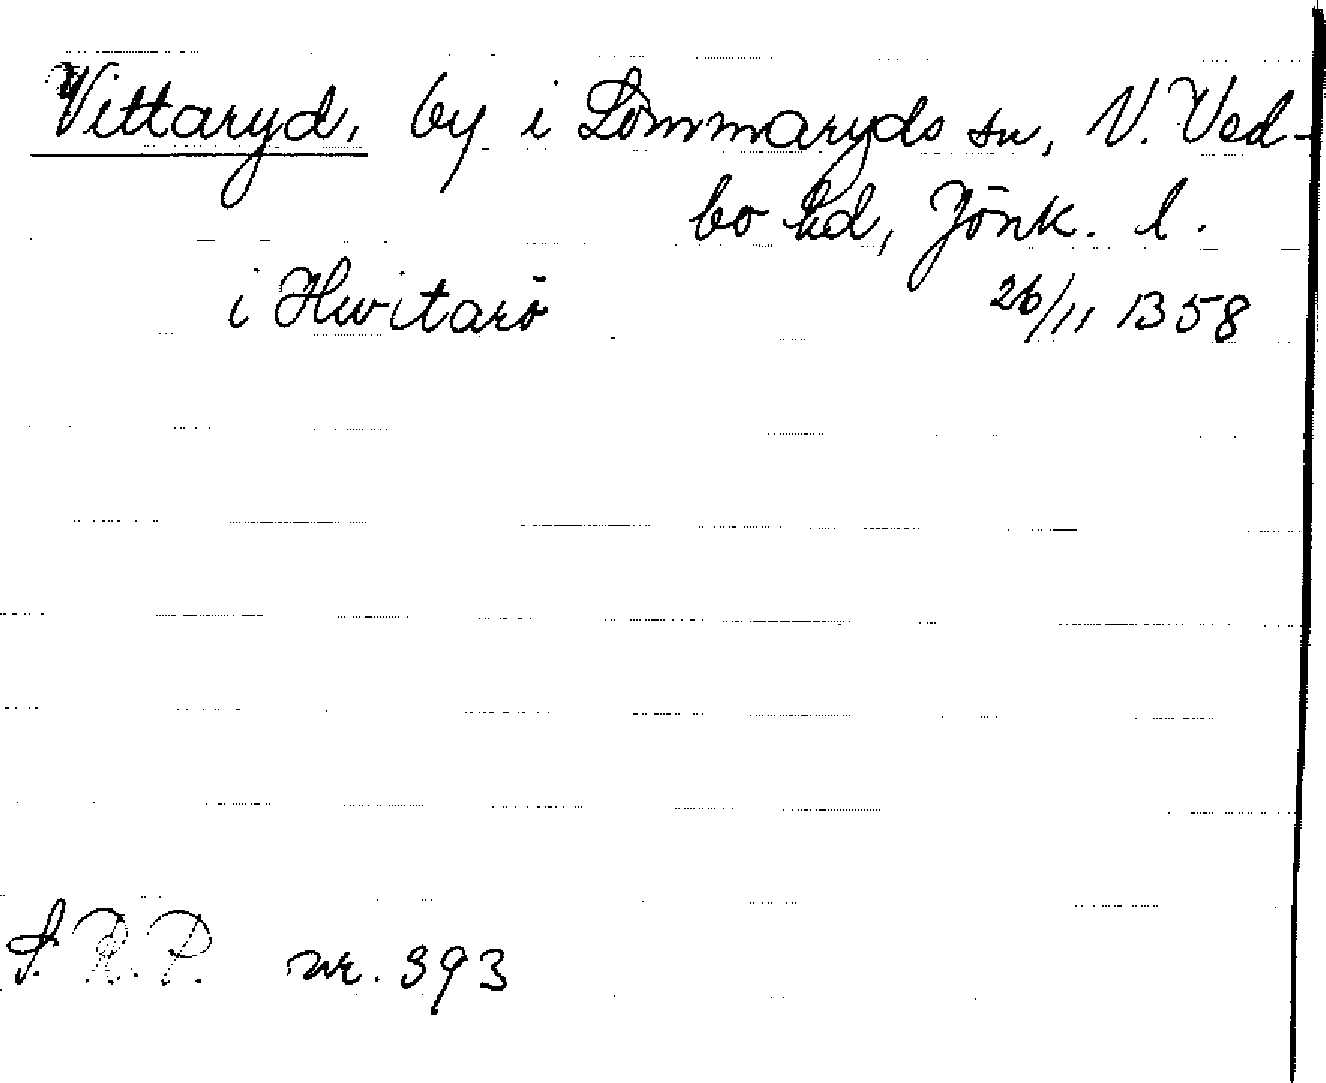 Vittaryd, by i Lommaryds sn, N. Ved-
bo hd, Jönk. l.
i Hwitarö 26/11 1358
S.R.P. nr. 393